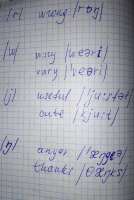 /r/ wrong /rɒŋ/
/w/ wary /weəri/
vary /veəri/
/j/ useful /juːsfəl/
cute /kjuːt/
/ŋ/ anger /æŋgə/
thanks /θæŋks/